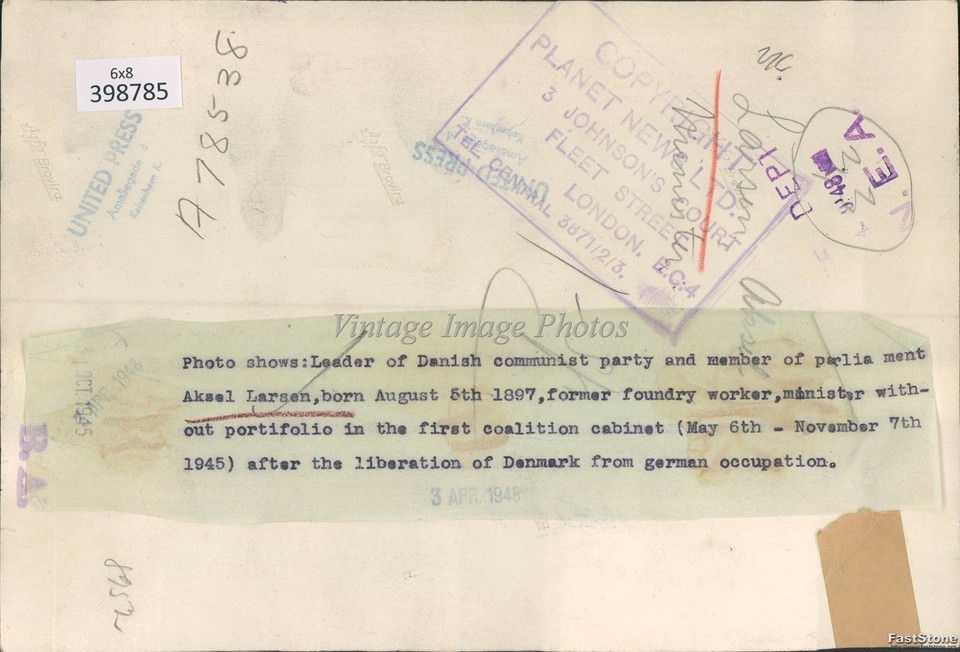 6x8
398785
A 78538
UNITED PRESS
Amaliegade
København K.
UNITED PRESS
COPYRIGHT
PLANET NEWS LTD.
3 JOHNSON'S COURT
FLEET STREET
LONDON, E.C.4
TEL. CENTRAL 3671/2/3.
Larsen
Aksel
DEPT
E.A
Vintage Image Photos
Photo shows:Leader of Danish communist party and member of parlia ment
Aksel Larsen,born August 5th 1897,former foundry worker,minister with-
out portifolio in the first coalition cabinet (May 6th - November 7th
1945) after the liberation of Denmark from german occupation.
3 APR. 1948
OCT. 1945
APR 1948
FastStone